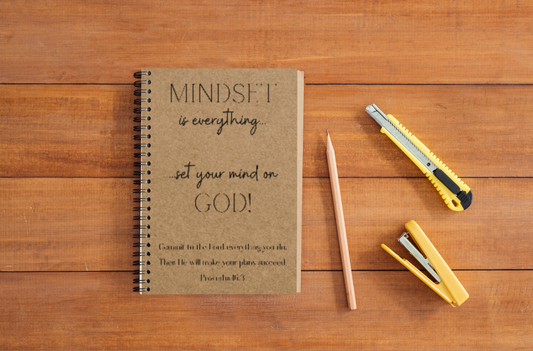 MINDSET
is everything...
...set your mind on
GOD!
Commit to the Lord everything you do.
Then He will make your plans succeed.
Proverbs 16:3